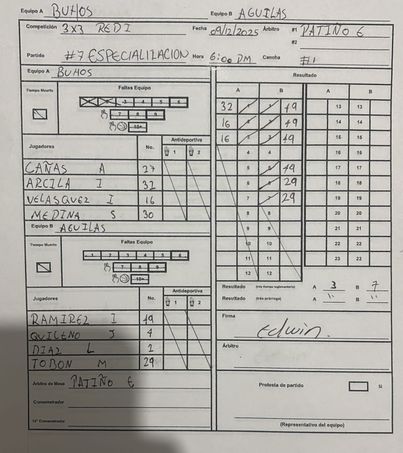 Equipo A BUHOS Equipo B AGUILAS
Competición 3x3 REDI Fecha 09/12/2025 Árbitro #1 PATIÑO E
#2
Partido #7 ESPECIALIZACION Hora 6:00 PM Cancha #1
Equipo A BUHOS
Tiempo Muerto Faltas Equipo
3 4 5 6
7 8 9
10+
Antideportiva
Jugadores No. 1 2
CAÑAS A 27
ARCILA I 32
VELASQUEZ I 16
MEDINA S 30
Equipo B AGUILAS
Tiempo Muerto Faltas Equipo
1 2 3 4 5 6
7 8 9
10+
Antideportiva
Jugadores No. 1 2
RAMIREZ I 49
QUICENO J 4
DIAZ L 2
TOBON M 29
Árbitro de Mesa PATIÑO E
Cronometrador
Resultado
A B A B
32 1 1 49 13 13
16 2 2 49 14 14
16 3 3 49 15 15
4 4 16 16
5 5 49 17 17
6 6 29 18 18
7 7 29 19 19
8 8 20 20
9 9 21 21
10 10 22 22
11 11 23 23
12 12
Resultado (tras tiempo reglamentario) A 3 B 7
Resultado (tras prórroga) A " B "
Firma
Edwin.
Árbitro
Protesta de partido Si
(Representativo del equipo)